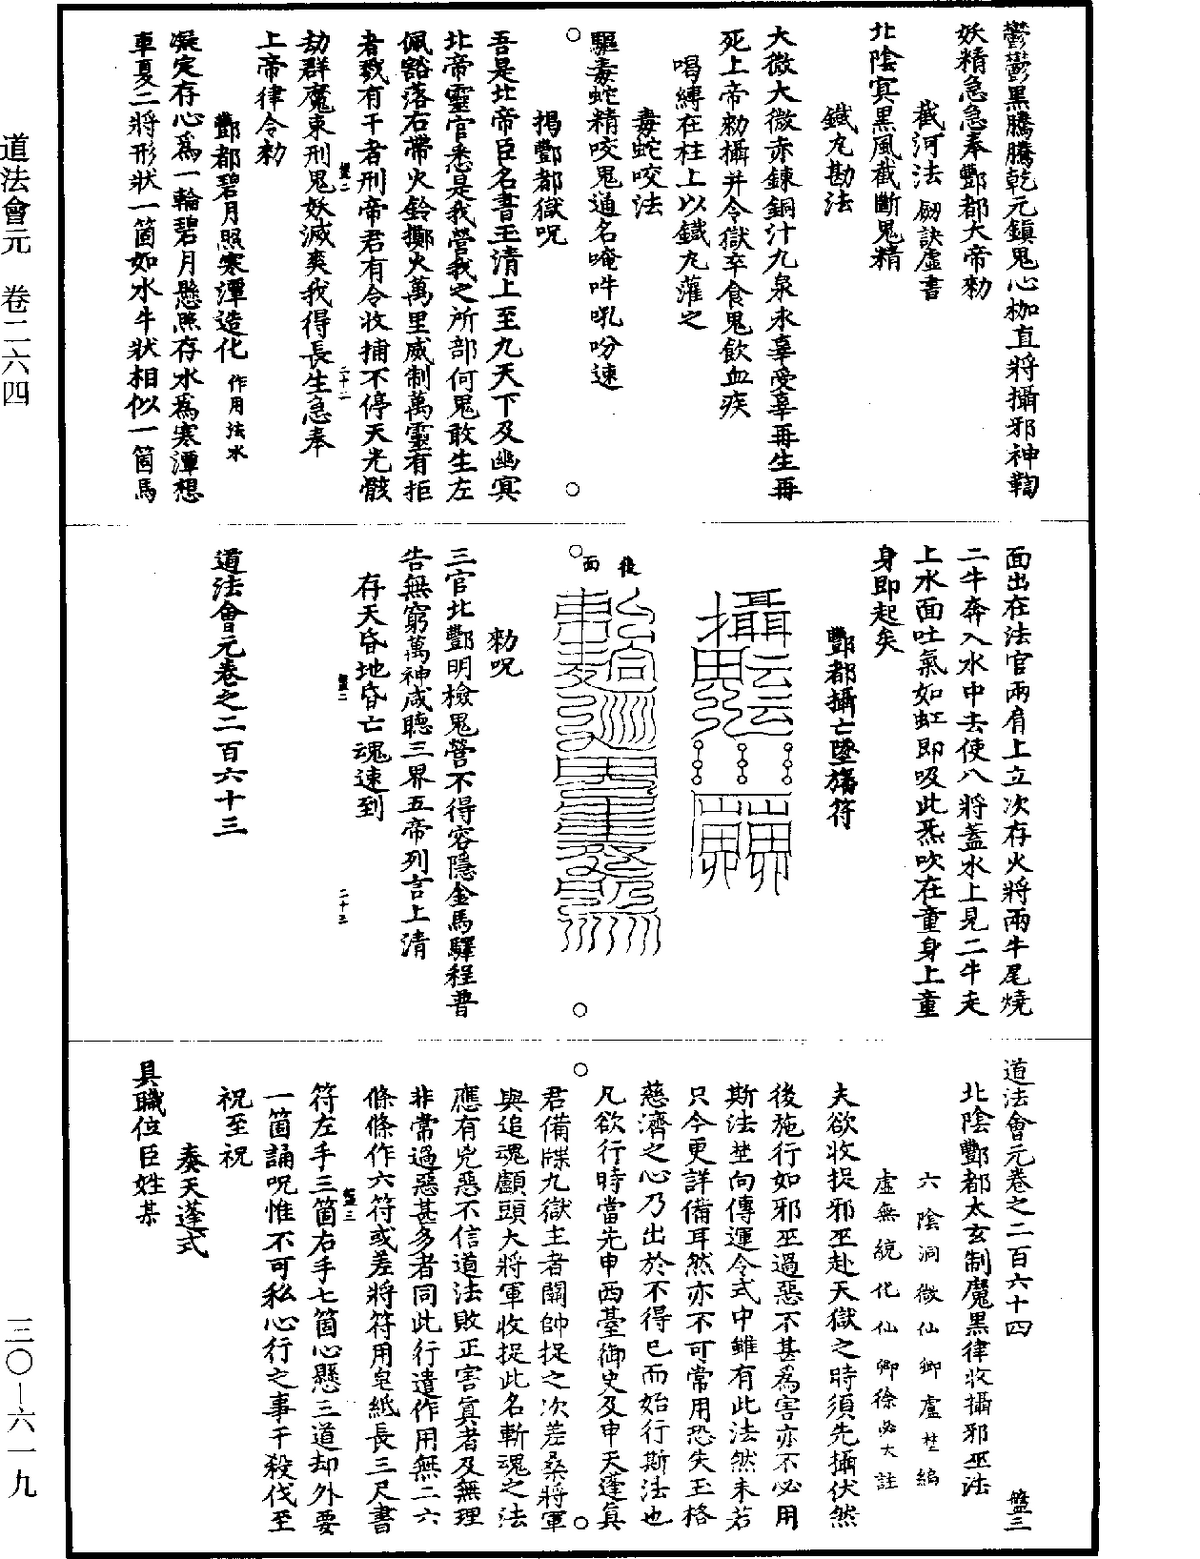 道法會元　卷二六四
三〇—六一九
鬱鬱黑騰騰乾元鎮鬼心枷直將攝邪神鞫
妖精急急奉酆都大帝勑
截河法　劒訣虛書
北陰冥黑風截斷鬼精
鐵丸勘法
大微大微赤鍊銅汁九泉永辜受辜再生再
死上帝勑攝并令獄卒食鬼飲血疾
喝縛在柱上以鐵丸灌之
毒蛇咬法
驅毒蛇精咬鬼通名唵吽吼吩速
揭酆都獄呪
吾是北帝臣名書玉清上至九天下及幽冥
北帝靈官悉是我營我之所部何鬼敢生左
佩豁落右帶火鈴擲火萬里威制萬靈有拒
者戮有干者刑帝君有令收捕不停天光骸
盤二
二十二
劫群魔束刑鬼妖滅爽我得長生急奉
上帝律令勑
酆都碧月照寒潭造化　作用法水
凝定存心爲一輪碧月懸照存水爲寒潭想
車夏二將形狀一箇如水牛狀相似一箇馬
面出在法官兩肩上立次存火將兩牛尾燒
二牛奔入水中去使八將蓋水上見二牛走
上水面吐氣如虹即吸此炁吹在童身上童
身即起矣
酆都攝亡墜旛符
後
面
勑呪
三官北酆明檢鬼營不得容隱金馬驛程普
告無窮萬神咸聽三界五帝列言上清
存天昏地昏亡魂速到
盤二
二十三
道法會元卷之二百六十三
道法會元卷之二百六十四　盤三
北陰酆都太玄制魔黑律收攝邪巫法
六陰洞微仙卿盧埜編
虛無統化仙卿徐必大註
夫欲收捉邪巫赴天獄之時須先攝伏然
後施行如邪巫過惡不甚爲害亦不必用
斯法埜向傳運令式中雖有此法然未若
只今更詳備耳然亦不可常用恐失玉格
慈濟之心乃出於不得已而始行斯法也
凡欲行時當先申西臺御史及申天蓬眞
君備牒九獄主者關帥捉之次差桑將軍
與追魂顱頭大將軍收捉此名斬魂之法
應有兇惡不信道法敗正害眞者及無理
非常過惡甚多者同此行遣作用無二六
條條作六符或差將符用皂紙長三尺書
盤三
符左手三箇右手七箇心懸三道却外要
一箇誦呪惟不可私心行之事干殺伐至
祝至祝
奏天蓬式
具職位臣姓某